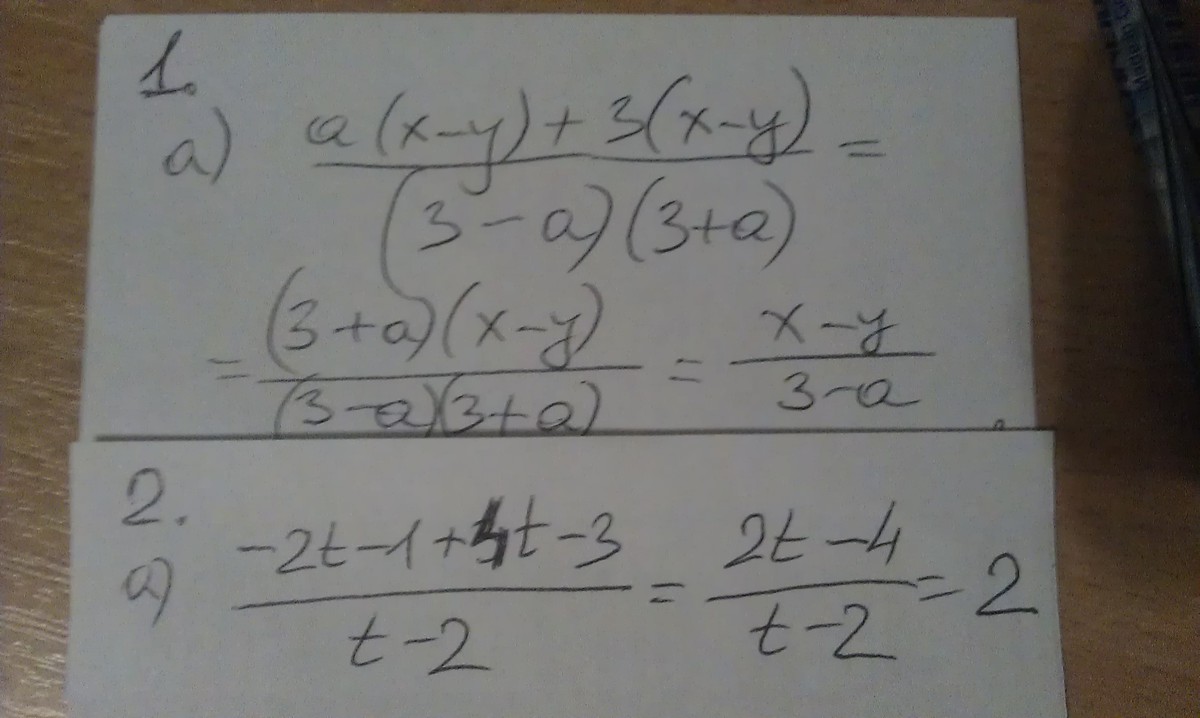 1.
a) (a(x-y)+3(x-y))/((3-a)(3+a)) =
= ((3+a)(x-y))/((3-a)(3+a)) = (x-y)/(3-a)
2.
a) (-2t-1+4t-3)/(t-2) = (2t-4)/(t-2) = 2
Made in